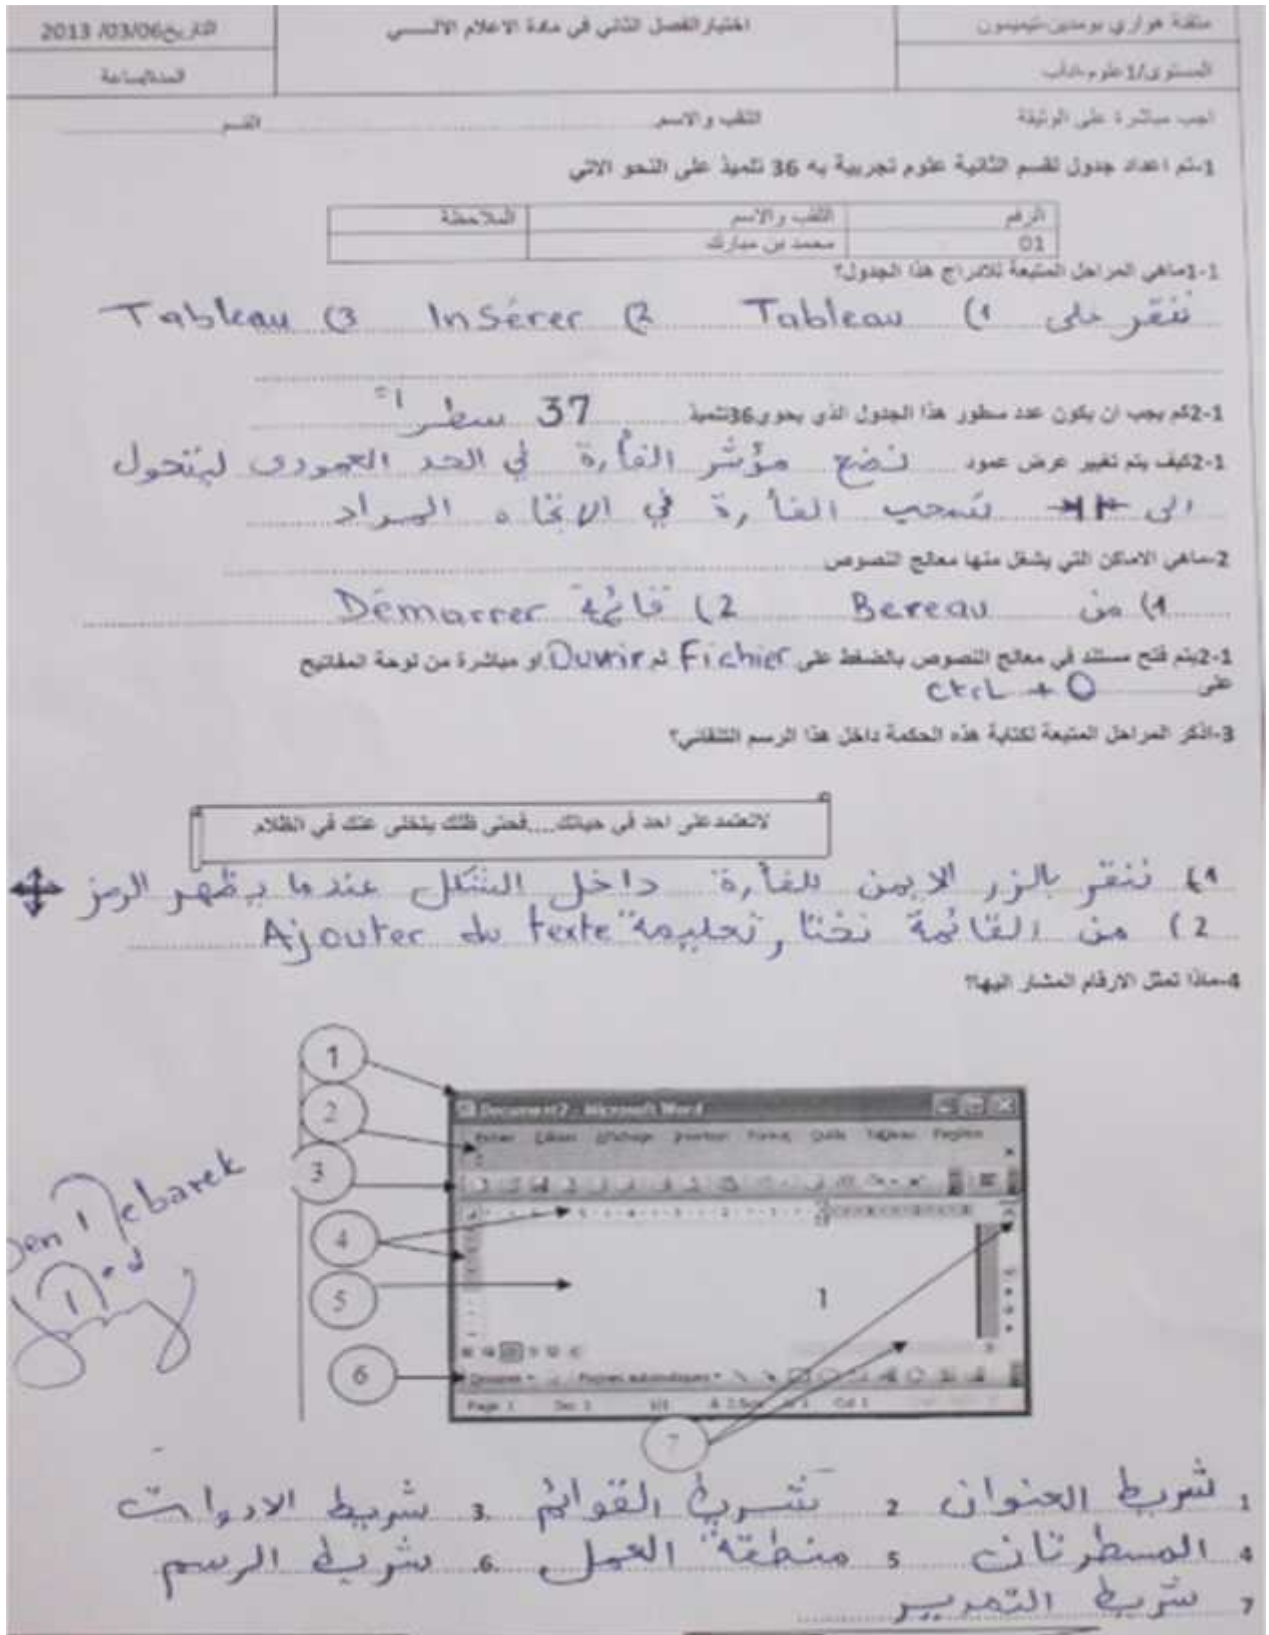 متقنة هواري بومدين-تيميمون
اختبار الفصل الثاني في مادة الاعلام الالـــــي
التاريخ 2013 /03/06
المستوى/1علوم+اداب
المدة/ساعة
اجب مباشرة على الوثيقة
اللقب والاسم
القسم
1-تم اعداد جدول لقسم الثانية علوم تجريبية به 36 تلميذ على النحو الاتي
الرقم اللقب والاسم الملاحظة
01 محمد بن مبارك
1-1ماهي المراحل المتبعة للادراج هذا الجدول؟
ننقر على 1) Tableau 2) Insérer 3) Tableau
1-2كم يجب ان يكون عدد سطور هذا الجدول الذي يحوي36تلميذ 37 سطرا
1-2كيف يتم تغيير عرض عمود نضع مؤشر الفأرة في الحد العمودي ليتحول
الى نسحب الفأرة في الاتجاه المراد
2-ماهي الاماكن التي يشغل منها معالج النصوص
1) من Bereau 2) قائمة Démarrer
2-1يتم فتح مستند في معالج النصوص بالضغط على Fichier ثم Ouvrir او مباشرة من لوحة المفاتيح
على Ctrl + O
3-اذكر المراحل المتبعة لكتابة هذه الحكمة داخل هذا الرسم التلقائي؟
لاتعتمدعلى احد في حياتك....فحتى ظلك يتخلى عنك في الظلام
1) ننقر بالزر الايمن للفأرة داخل الشكل عندما يظهر الرمز
2) من القائمة نختار تعليمة Ajouter du texte
4-ماذا تمثل الارقام المشار اليها؟
1
2
3
4
5
6
7
Document2 - Microsoft Word
Fichier Edition Affichage Insertion Format Outils Tableau Fenêtre
1
Dessin Formes automatiques
Page 1 Sec 1 1/1 À 2.5cm Col 1
Ben Mebarek
Med
1 شريط العنوان 2 شريط القوائم 3 شريط الادوات
4 المسطرتان 5 منطقة العمل 6 شريط الرسم
7 شريط التمرير